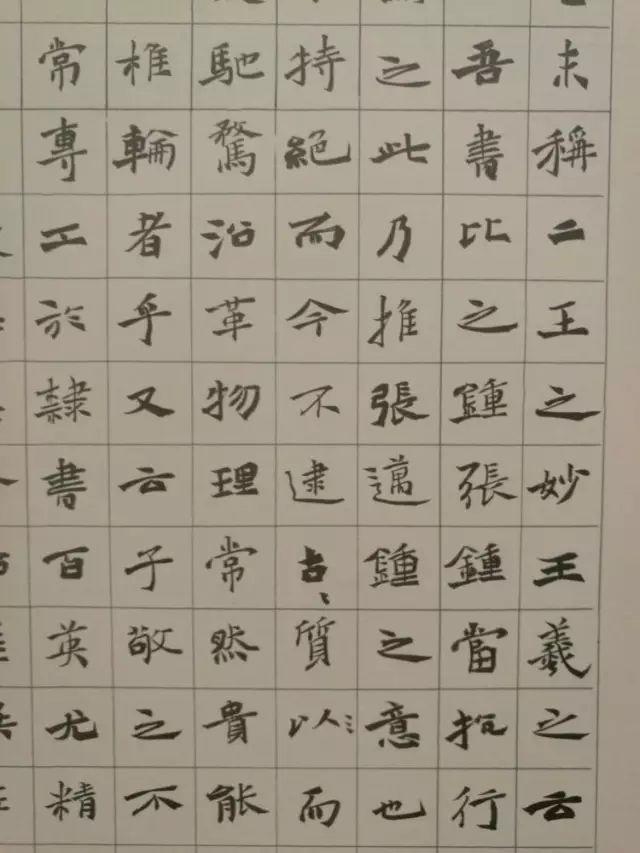 末稱二王之妙王羲之云
吾書比之鍾張鍾當抗行
之此乃推張邁鍾之意也
持絕而今不逮古〻質以而
馳騖沿革物理常然貴能
椎輪者乎又云子敬之不
常專工於隸書百英尤精